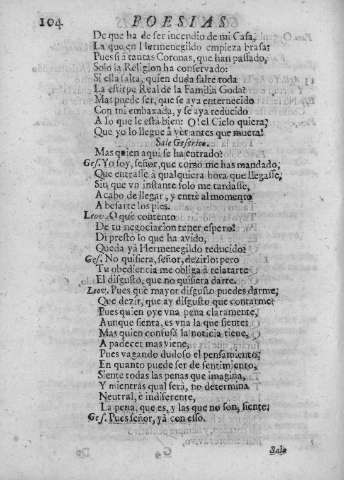 104 POESIAS.
De que ha de ser incendio de mi Casa,
La que en Hermenegildo empieza brasa?
Pues si a tantas Coronas, que han passado,
Solo la Religion ha conservado:
Si ella falta, quien duda falte toda
La estirpe Real de la Familia Goda?
Mas puede ser, que se aya enternecido
Con mi embaxada, y se aya reducido
A lo que le està bien: O! el Cielo quiera,
Que yo lo llegue à ver antes que muera!
Sale Geserico.
Mas quien aqui se ha entrado?
Ges. Yo soy, señor, que como me has mandado,
Que entrasse à qualquiera hora que llegasse,
Sin que vn instante solo me tardasse,
Acabo de llegar, y entrè al momento
A besarte los pies.
Leov. O què contento
De tu negociacion tener espero!
Di presto lo que ha avido,
Queda yà Hermenegildo reducido?
Ges. No quisiera, señor, dezirlo; pero
Tu obediencia me obliga à relatarte
El disgusto, que no quisiera darte.
Leov. Pues què mayor disgusto puedes darme,
Que dezir, que ay disgusto que contarme?
Pues quien oye vna pena claramente,
Aunque sienta, es vna la que siente;
Mas quien confusa la noticia tiene,
A padecer mas viene,
Pues vagando dudoso el pensamiento,
En quanto puede ser de sentimiento,
Siente todas las penas que imagina,
Y mientras qual serà, no determina
Neutral, è indiferente,
La pena, que es, y las que no son, siente.
Ges. Pues señor, yà con esso.
Sale